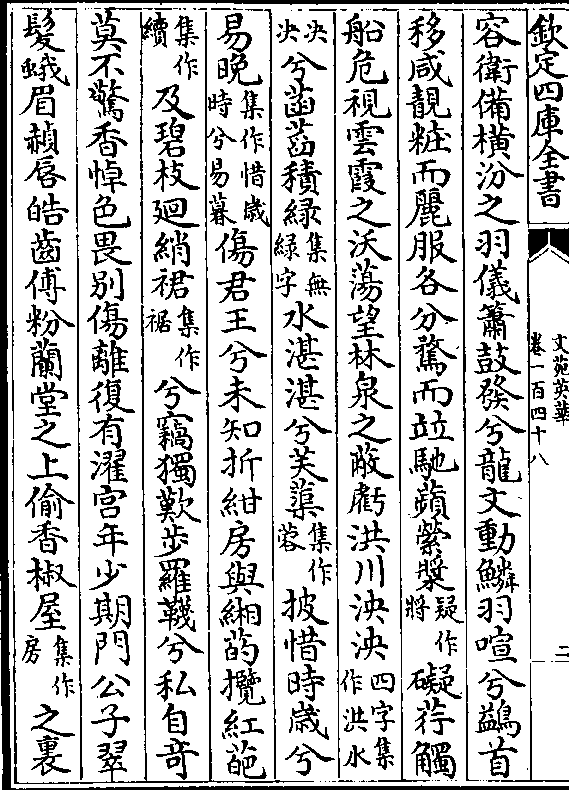 欽定四庫全書
文苑英華
卷一百四十八
二
容衛備橫汾之羽儀簫鼓發兮龍文動鱗羽喧兮鷁首
移咸靚粧而麗服各分鶩而竝馳蘋縈漿疑作將礙荇觸
船危視雲霞之沃蕩望林泉之敝虧洪川泱泱四字集作洪水
泱泱兮菡萏積綠集無綠字水湛湛兮芙蕖集作蓉披惜時歲兮
易晚集作惜歲時兮易暮傷君王兮未知折紺房與緗菂攬紅葩
及碧枝迴綃裙集作裾兮竊獨歎步羅韈兮私自竒
莫不驚香悼色畏別傷離復有濯宫年少期門公子翠
髮蛾眉赬唇皓齒傅粉蘭堂之上偷香椒屋集作房之裏